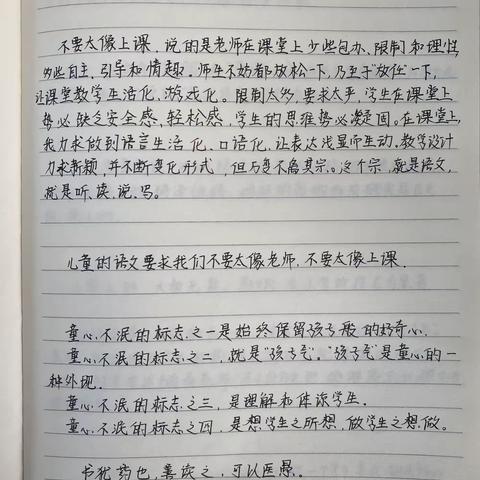 不要太像上课，说的是老师在课堂上少些包办、限制和理性，
多些自主、引导和情趣。师生不妨都放松一下，乃至于"放任"一下，
让课堂教学生活化、游戏化。限制太多，要求太严，学生在课堂上
势必缺乏安全感、轻松感，学生的思维势必凝固。在课堂上，
我力求做到语言生活化、口语化，让表达浅显而生动。教学设计
力求新颖，并不断变化形式，但万变不离其宗。这个宗，就是语文，
就是听、读、说、写。
儿童的语文要求我们不要太像老师，不要太像上课。
童心不泯的标志之一是始终保留孩子般的好奇心。
童心不泯的标志之二，就是"孩子气"。"孩子气"是童心的一
种外现。
童心不泯的标志之三，是理解和体谅学生。
童心不泯的标志之四，是想学生之所想，做学生之想做。
书犹药也，善读之，可以医愚。